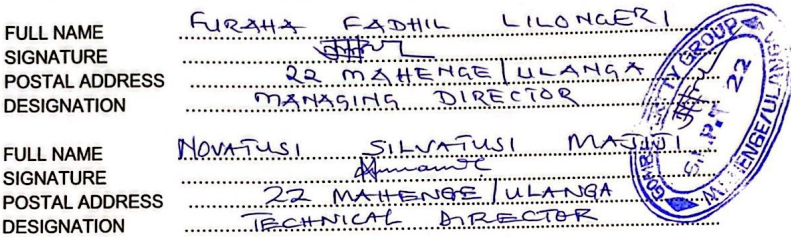 FULL NAME FURAHA FADHIL LILONGERI
SIGNATURE
POSTAL ADDRESS 22 MAHENGE/ULANGA
DESIGNATION MANAGING DIRECTOR
FULL NAME NOVATUSI SILVATUSI MAJIJI
SIGNATURE
POSTAL ADDRESS 22 MAHENGE/ULANGA
DESIGNATION TECHNICAL DIRECTOR
TV GROUP
22
MAHENGE/ULANGA